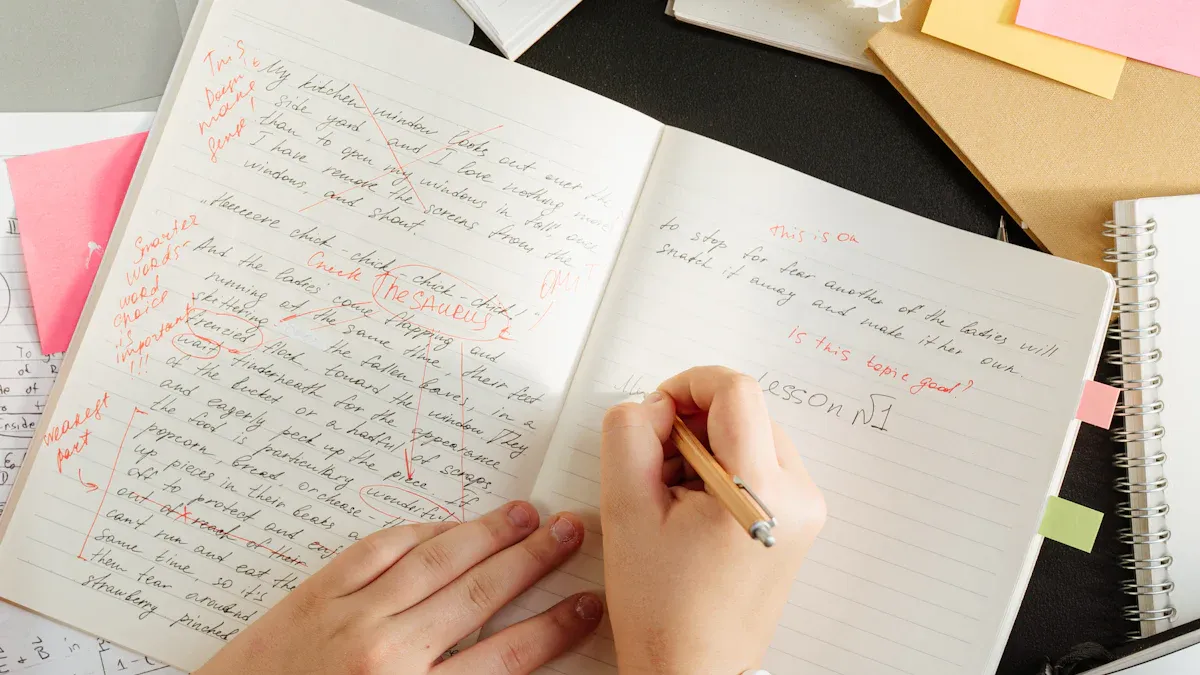 This
Doesn
make
sense!
My kitchen window looks out over the
side yard, and I love nothing more
than to open my windows in fall, once
I have remove the screens from the
windows, and shout.
"Heeeeere chick-chick-chick-chick!"
Check
THESAURUS
OMIT
!
Smarter
words-
word
choice
is
important
!!!
And the ladies come flapping and
running at the same time, their feet
skittering the fallen leaves, in a
frenzied flock, toward the window. They
wait underneath for the appearance
of the bucket or a hadful of scraps
and eagerly peck up the piece. If
the food is particulary wonderful
popcorn, bread, or cheese th
up pieces in their beaks a
off to protect and enj
out of reach of their
can't run and eat the
same time, so it's
them tear around
strawberry pinched
weakest
part
This is OK
to stop for fear another of the ladies will
snatch it away and make it her own.
Is this topic good?
Lesson №1
To
of
inside
B in